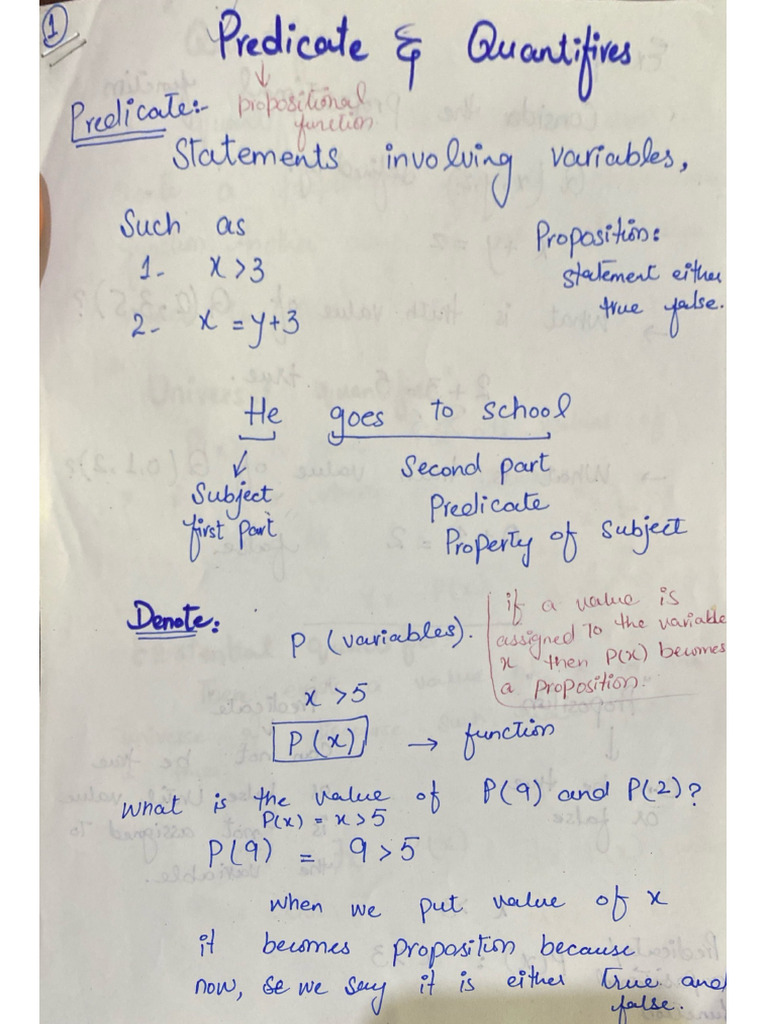 1
Predicate & Quantifires
propositional
function
Predicate:-
Statements involving variables,
Such as
1- x>3
2- x = y+3
Proposition:
statement either
true false.
He goes to school
Subject
first part
Second part
Predicate
Property of subject
Denote:
P (variables).
if a value is
assigned to the variable
x then P(x) becomes
a proposition.
x >5
P(x) → function
What is the value of P(9) and P(2)?
P(x) = x>5
P(9) = 9>5
when we put value of x
it becomes proposition because
now, we say it is either true and
false.